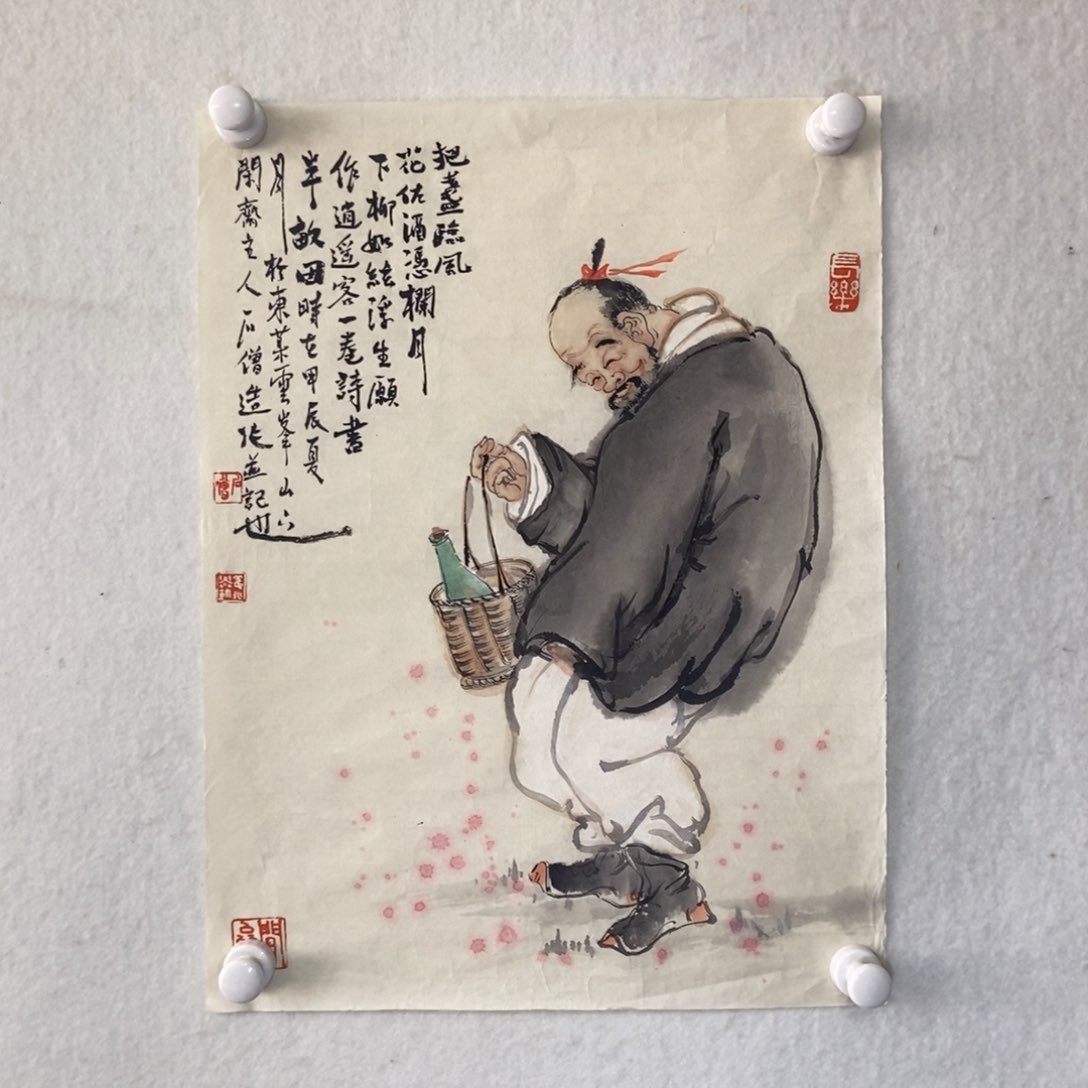 把盞臨風
花佐酒憑欄月
下柳如絃浮生願
作逍遥客一卷詩書
半畝田時在甲辰夏
月於東萊雲峯山下
閑齋主人石僧造並記也
長樂
石僧